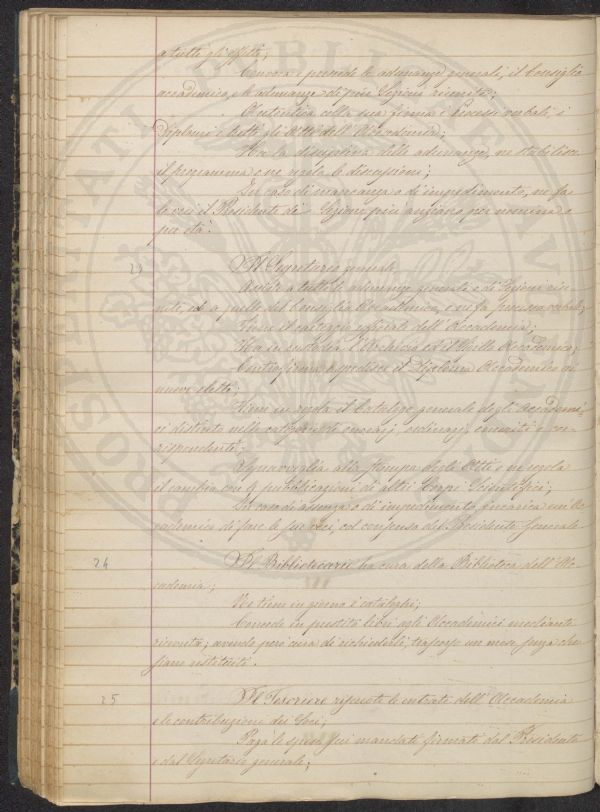 a tutti gli effetti;
Convoca e presiede le adunanze generali, il Consiglio
accademico, e le adunanze di più Sezioni riunite;
Autentica colla sua firma i Processi verbali, i
Diplomi e tutti gli Atti dell'Accademia;
Ha la disciplina delle adunanze, ne stabilisce
il programma e ne regola le discussioni;
In caso di mancanza o di impedimento, ne fa
le veci il Presidente di Sezione più anziano per nomina o
per età.
23 Il Segretario generale
Assiste a tutte le adunanze generali e di Sezioni riu-
nite, ed a quelle del Consiglio Accademico, e ne fa processo verbale;
Tiene il carteggio ufficiale dell'Accademia;
Ha in custodia l'Archivio ed il Sigillo Accademico;
Controfirma e spedisce il Diploma Accademico ai
nuovi eletti;
Tiene in regola il Catalogo generale degli Accademi-
ci distinti nelle categorie di onorarj, ordinarj, emeriti e cor-
rispondenti;
Sopravveglia alla stampa degli Atti e ne regola
il cambio con le pubblicazioni di altri Corpi Scientifici;
In caso di assenza o di impedimento, incarica un Ac-
cademico di fare le sue veci, col consenso del Presidente generale
24 Il Bibliotecario ha cura della Biblioteca dell'Ac-
cademia;
Ne tiene in giorno i cataloghi;
Concede in prestito libri agli Accademici mediante
ricevuta; avendo però cura di richiederli, trascorso un mese senza che
siano restituiti.
25 Il Tesoriere riscuote le entrate dell'Accademia
e le contribuzioni dei Soci;
Paga le spese sui mandati firmati dal Presidente
e dal Segretario generale;
PROSPERITATI PUBLICAE AV